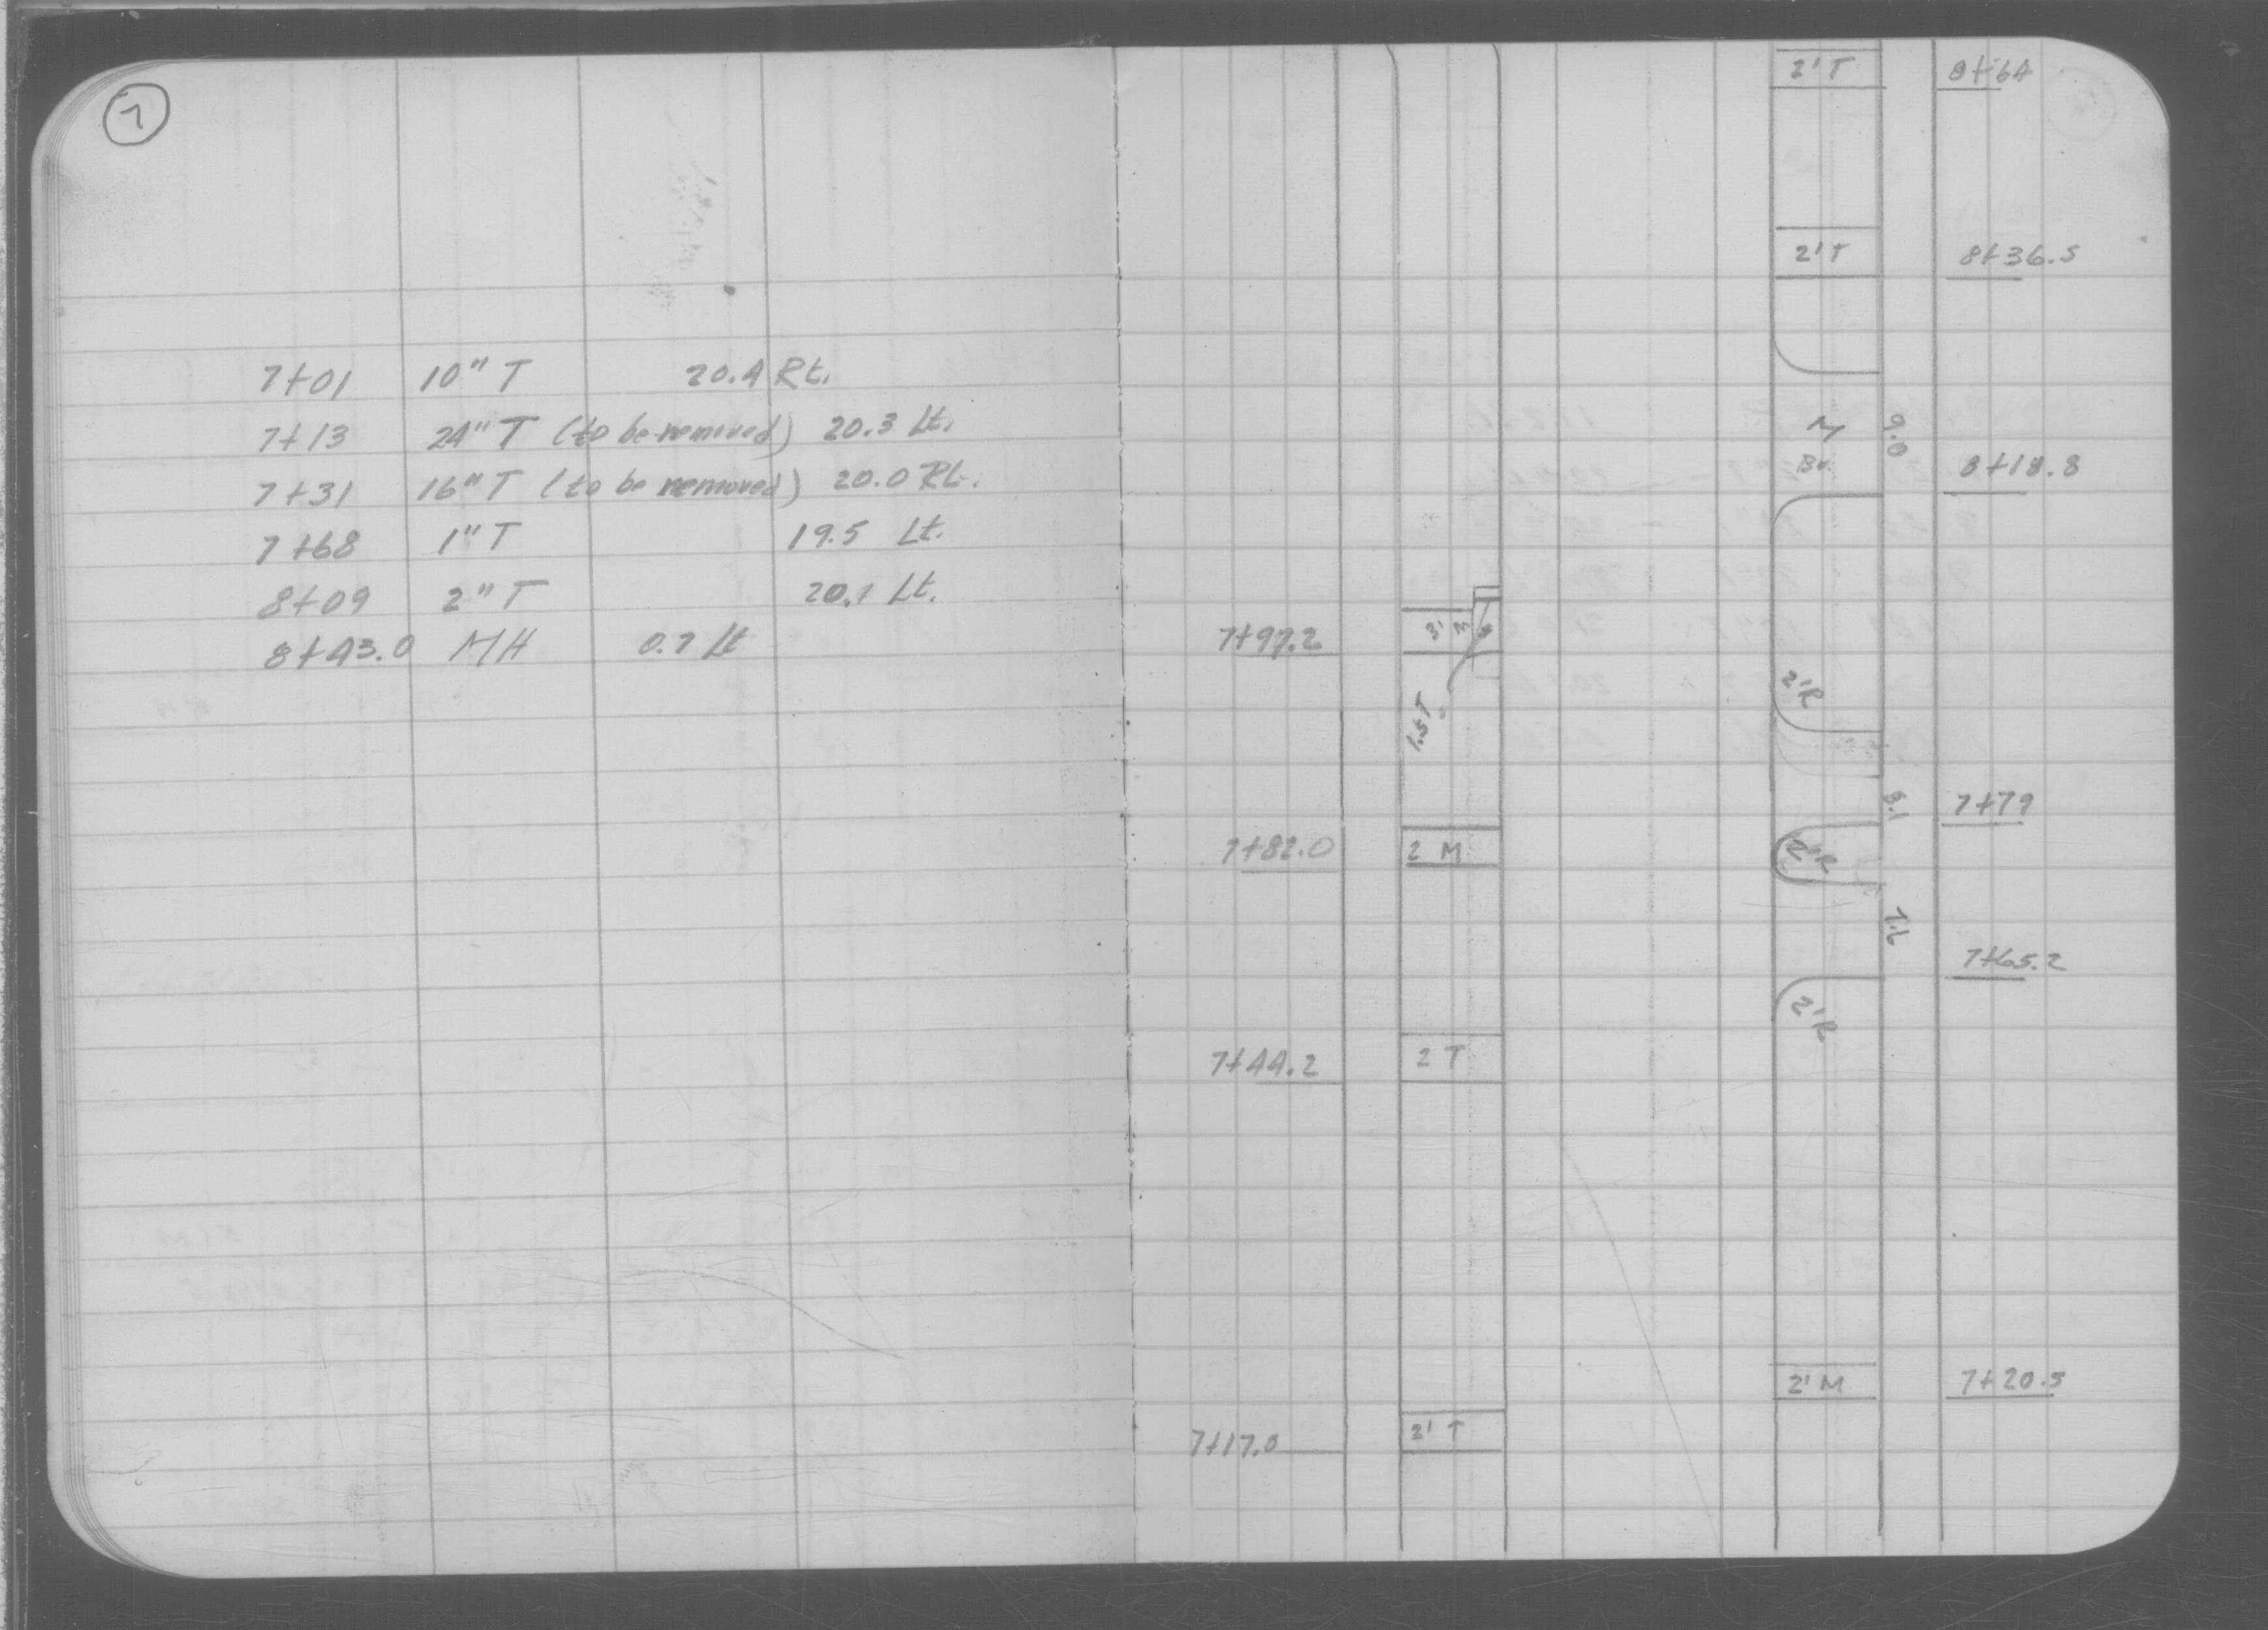 7
7+01 10" T 20.4 Rt.
7+13 24" T (to be removed) 20.3 Lt.
7+31 16" T (to be removed) 20.0 Rt.
7+68 1" T 19.5 Lt.
8+09 2" T 20.1 Lt.
8+43.0 MH 0.7 Lt
2' T 8+64
2' T 8+36.5
M 9.0
Br. 8+18.8
7+97.2 3' 3
2'R
1.5T
8.1 7+79
7+82.0 2 M 2'R
7.6
7+65.2
2'R
7+44.2 2 T
2' M 7+20.5
7+17.0 2' T